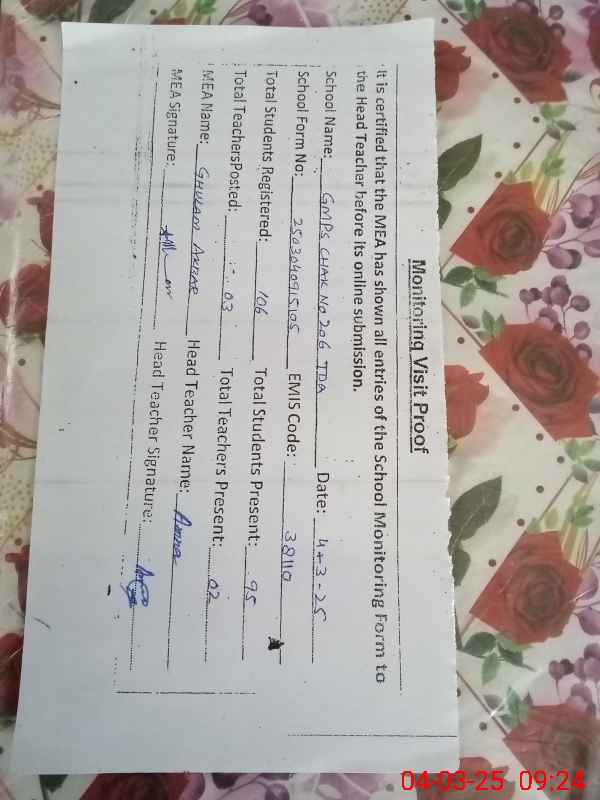 Monitoring Visit Proof
It is certified that the MEA has shown all entries of the School Monitoring Form to
the Head Teacher before its online submission.
School Name: GMPS CHAK NO 206 TDA Date: 4-3-25
School Form No: 2503040915105 EMIS Code: 38110
Total Students Registered: 106 Total Students Present: 95
Total TeachersPosted: 03 Total Teachers Present: 02
MEA Name: GHULAM Head Teacher Name: Amna
MEA Signature: Head Teacher Signature:
04-03-25 09:24